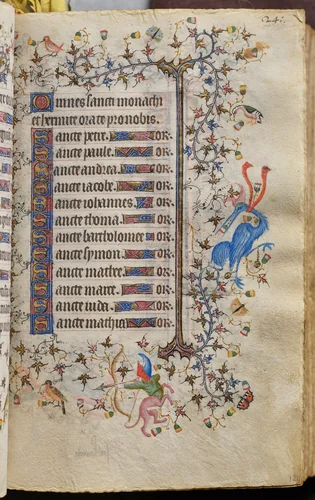 Omnes sancti monachi
et heremite orate pro nobis.
Sancte petre. OR.
Sancte paule. OR.
Sancte andrea. OR.
Sancte iacobe. OR.
Sancte iohannes. OR.
Sancte thoma. OR.
Sancte bartholomee OR.
Sancte symon. OR.
Sancte mathee. OR.
Sancte marce. OR.
Sancte iuda. OR.
Sancte mathia. OR.